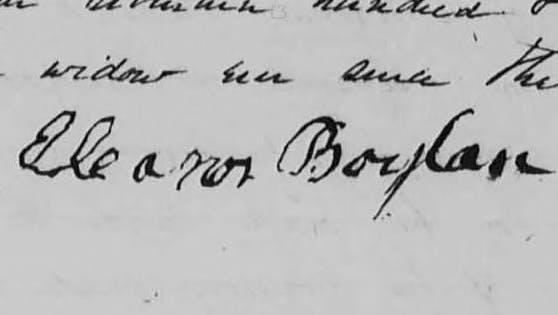 hundred &
widow ever since the
Eleanor Boylan